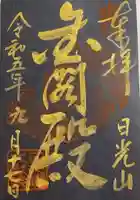 奉拝
日光山
金閣殿
令和五年九月十七日